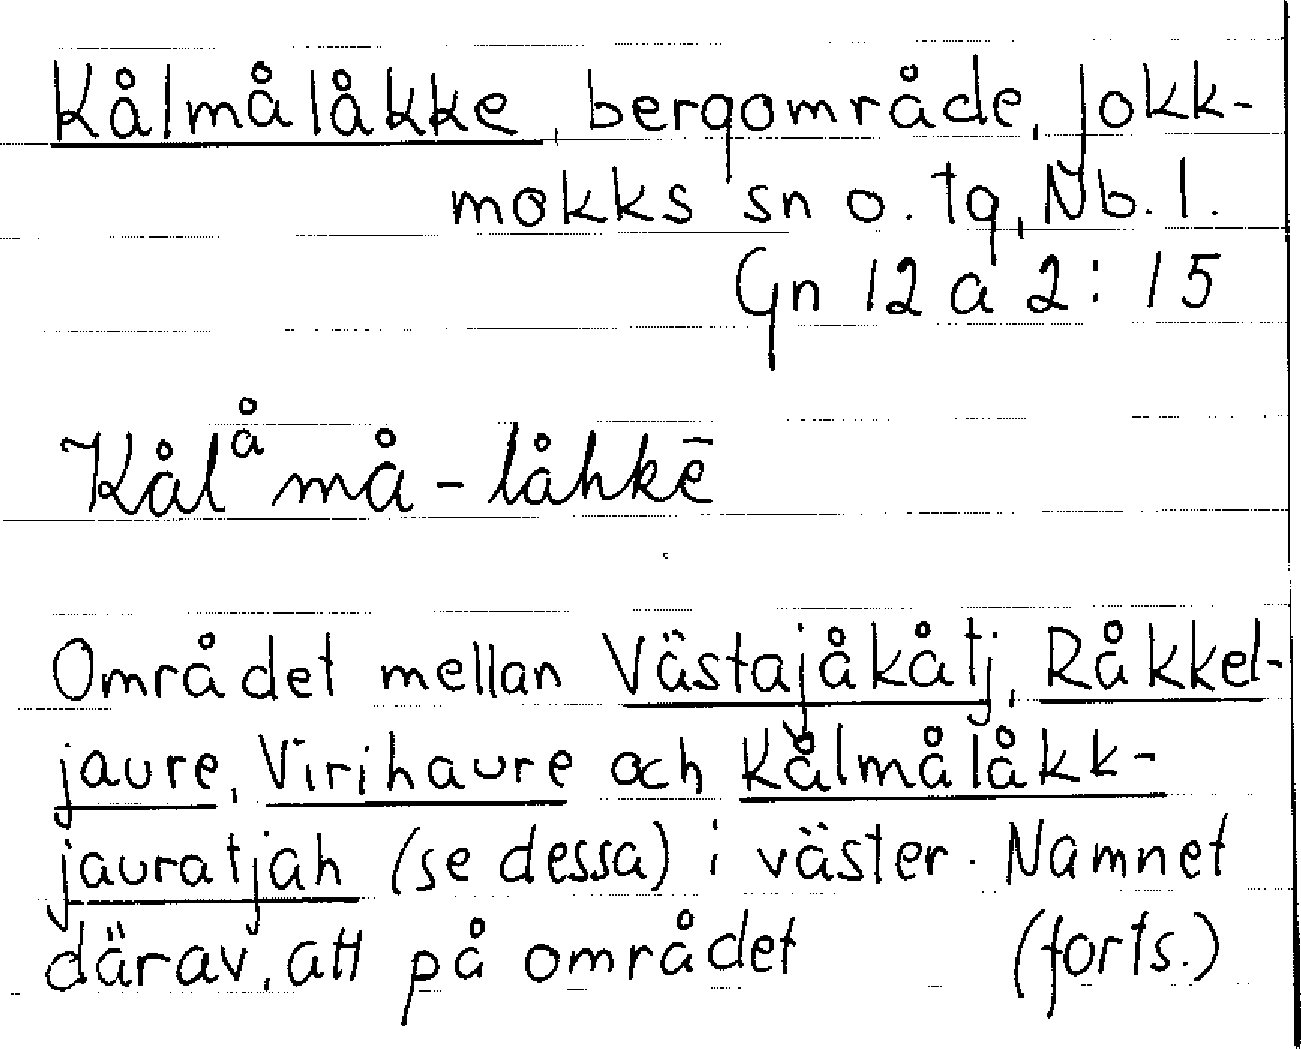 Kålmålåkke, bergområde, Jokk-
mokks sn o. tg, Nb. l.
Gn 12 a 2: 15
Kålåmå - låhkē
Området mellan Västajåkåtj, Råkkel-
jaure, Virihaure och Kålmålåkk-
jauratjah (se dessa) i väster. Namnet
därav, att på området (forts.)